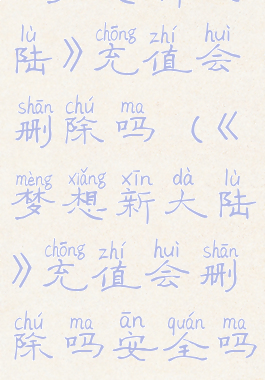 lù chōng zhí huì
陆》充值会
shān chú ma
删除吗 (《
mèng xiǎng xīn dà lù
梦想新大陆
chōng zhí huì shān
》充值会删
chú ma ān quán ma
除吗安全吗